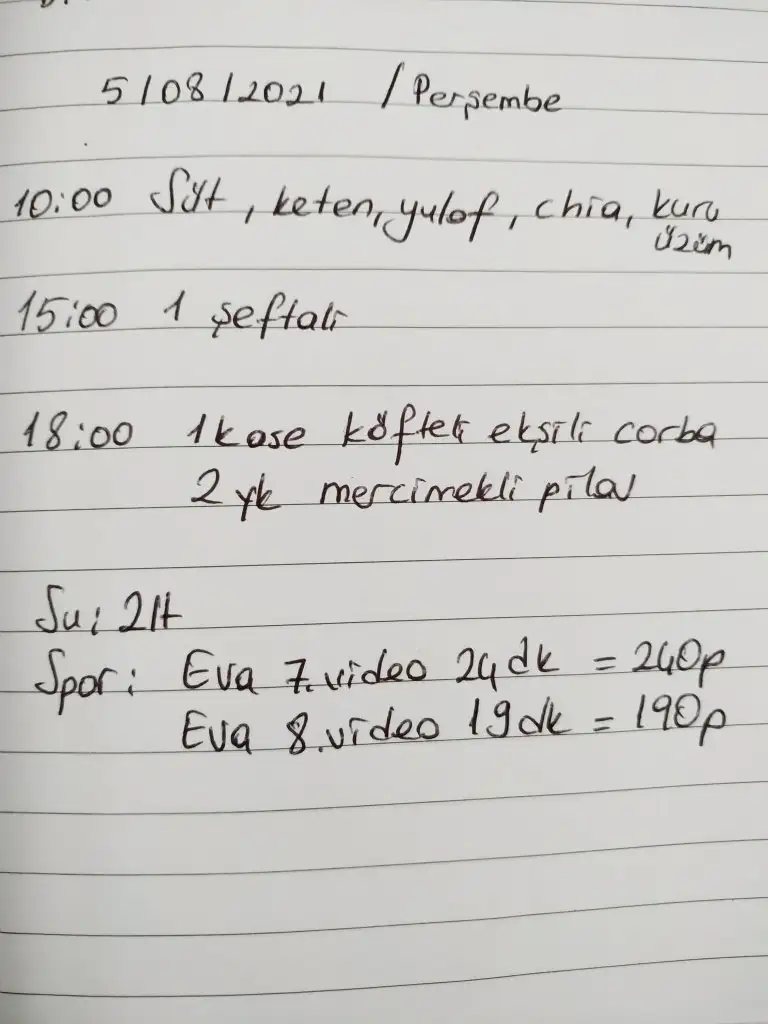 5/08/2021 / Perşembe
10:00 Süt, keten, yulaf, chia, kuru
üzüm
15:00 1 şeftali
18:00 1 kase köfteli ekşili corba
2 yk mercimekli pilav
Su: 2lt
Spor: Eva 7.video 24 dk = 240p
Eva 8.video 19 dk = 190p